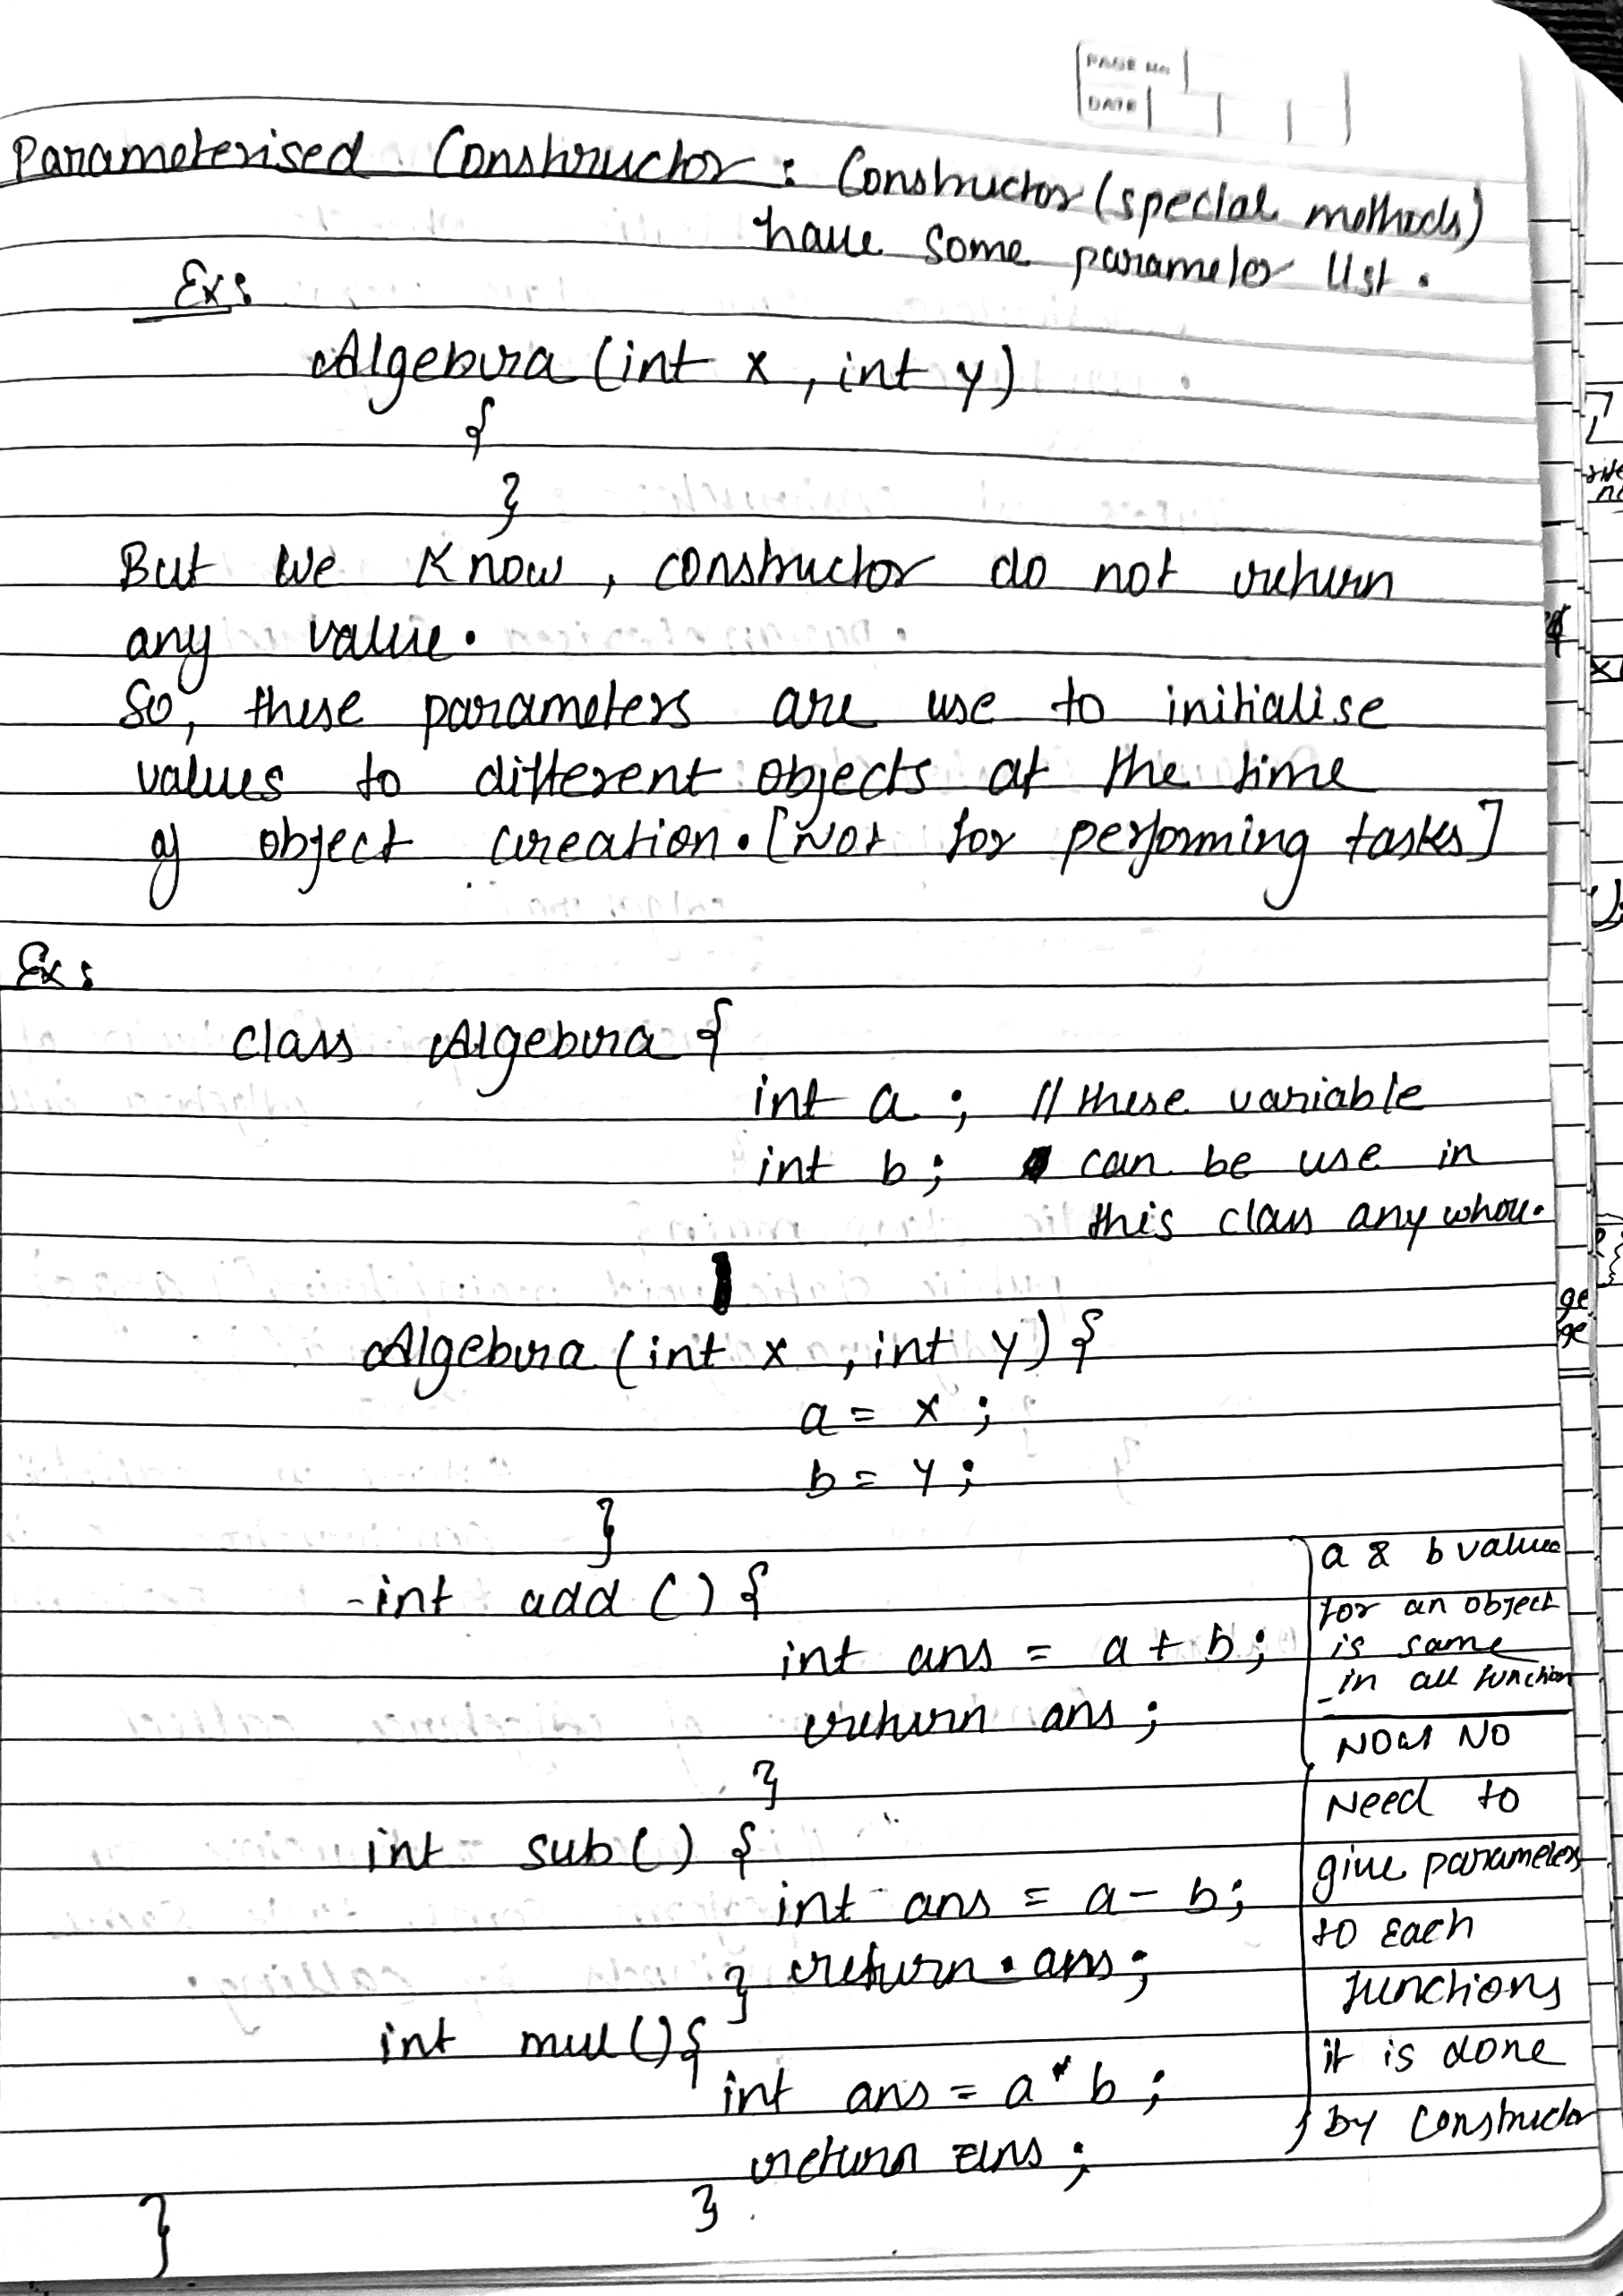 PAGE No
DATE
Parameterised Constructor : Constructor (special methods)
have some parameter list .
Ex :
Algebra (int x , int y)
{
}
But We Know , constructor do not return
any value .
So, these parameters are use to initialise
values to different objects at the time
of object creation . [Not for performing tasks]
Ex :
class Algebra {
int a ; // these variable
int b ; can be use in
this class any where .
Algebra (int x , int y) {
a = x ;
b = y ;
}
int add () {
int ans = a + b ;
return ans ;
}
int sub () {
int ans = a - b ;
return ans ;
}
int mul () {
int ans = a * b ;
return ans ;
}
}
a & b value
for an object
is same
in all function
Now NO
Need to
give parameters
to Each
functions
it is done
by Constructor